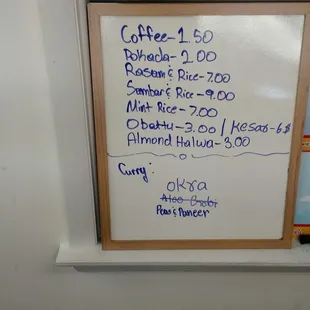 Coffee-1.50
Pokada-2.00
Rasam & Rice-7.00
Sambar & Rice-9.00
Mint Rice-7.00
Obattu-3.00/Kesar-6$
Almond Halwa-3.00
Curry:
okra
Aloo Gobi
Peas & Paneer